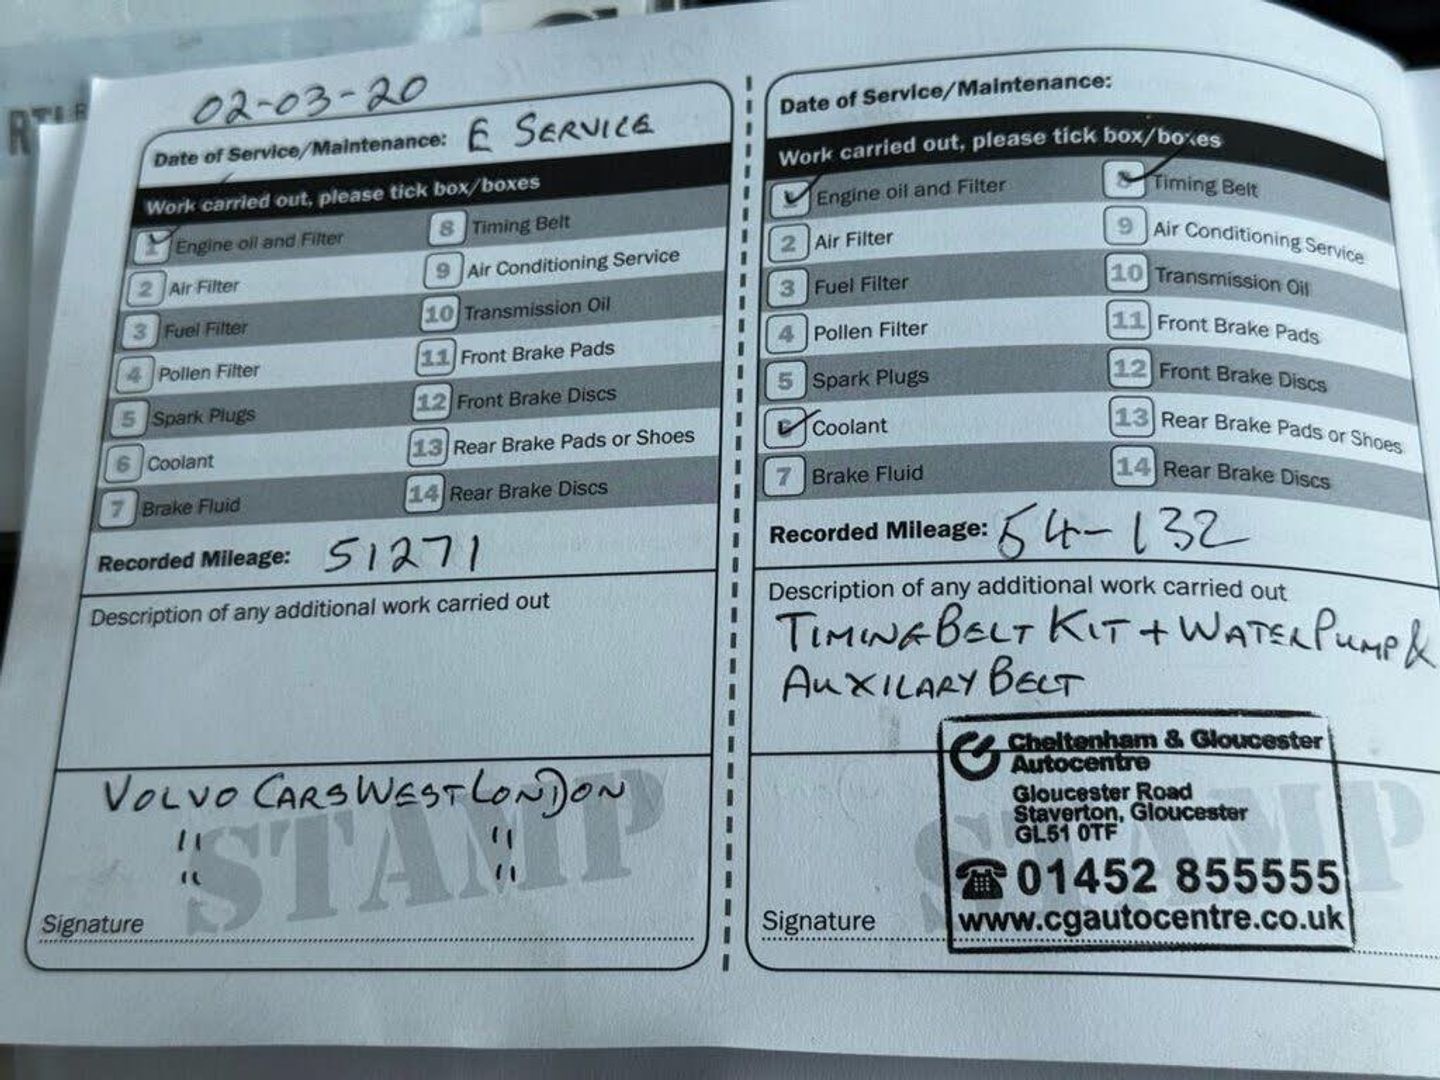 02-03-20
Date of Service/Maintenance: E SERVICE
Work carried out, please tick box/boxes
1 Engine oil and Filter
2 Air Filter
3 Fuel Filter
4 Pollen Filter
5 Spark Plugs
6 Coolant
7 Brake Fluid
8 Timing Belt
9 Air Conditioning Service
10 Transmission Oil
11 Front Brake Pads
12 Front Brake Discs
13 Rear Brake Pads or Shoes
14 Rear Brake Discs
Recorded Mileage: 51271
Description of any additional work carried out
VOLVO CARS WEST LONDON
" "
" "
STAMP
Signature
Date of Service/Maintenance:
Work carried out, please tick box/boxes
1 Engine oil and Filter
2 Air Filter
3 Fuel Filter
4 Pollen Filter
5 Spark Plugs
6 Coolant
7 Brake Fluid
8 Timing Belt
9 Air Conditioning Service
10 Transmission Oil
11 Front Brake Pads
12 Front Brake Discs
13 Rear Brake Pads or Shoes
14 Rear Brake Discs
Recorded Mileage: 54-132
Description of any additional work carried out
TIMING BELT KIT + WATER PUMP &
AUXILARY BELT
Cheltenham & Gloucester
Autocentre
Gloucester Road
Staverton, Gloucester
GL51 0TF
01452 855555
www.cgautocentre.co.uk
STAMP
Signature